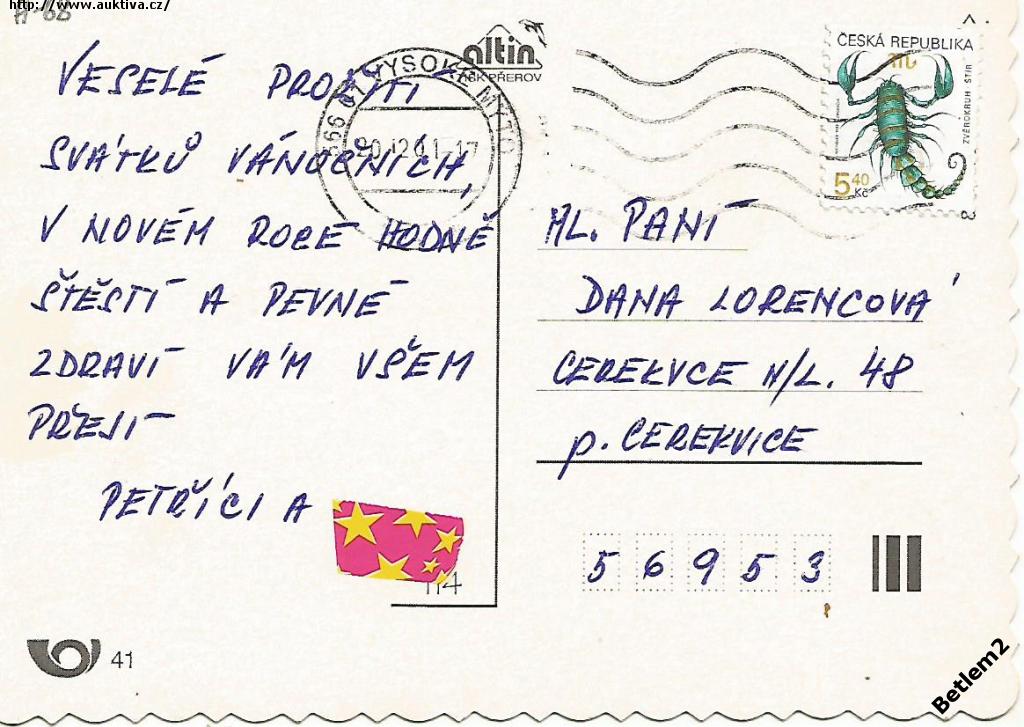 http://www.auktiva.cz/
altin
TISK PŘEROV
VYSOKÉ MÝTO
20.12.01-17
ČESKÁ REPUBLIKA
ZVĚROKRUH ŠTÍR
5 40 Kč
VESELÉ PROŽITÍ
SVÁTKŮ VÁNOČNÍCH,
V NOVÉM ROCE HODNĚ
ŠTĚSTÍ A PEVNÉ
ZDRAVÍ VÁM VŠEM
PŘEJÍ
PETŘÍCI A
ML. PANÍ
DANA LORENCOVÁ
CEREKVCE N/L. 48
p. CEREKVICE
56953
41
Betlem2